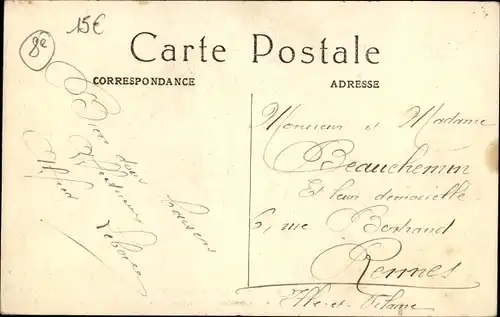 8e
15€
Carte Postale
CORRESPONDANCE
ADRESSE
Bien doux baisers
Affectueux
Alfred
Monsieur et Madame
Beauchemin
Et leur demoiselle
6, rue Bertrand
Rennes
Ille-et-Vilaine